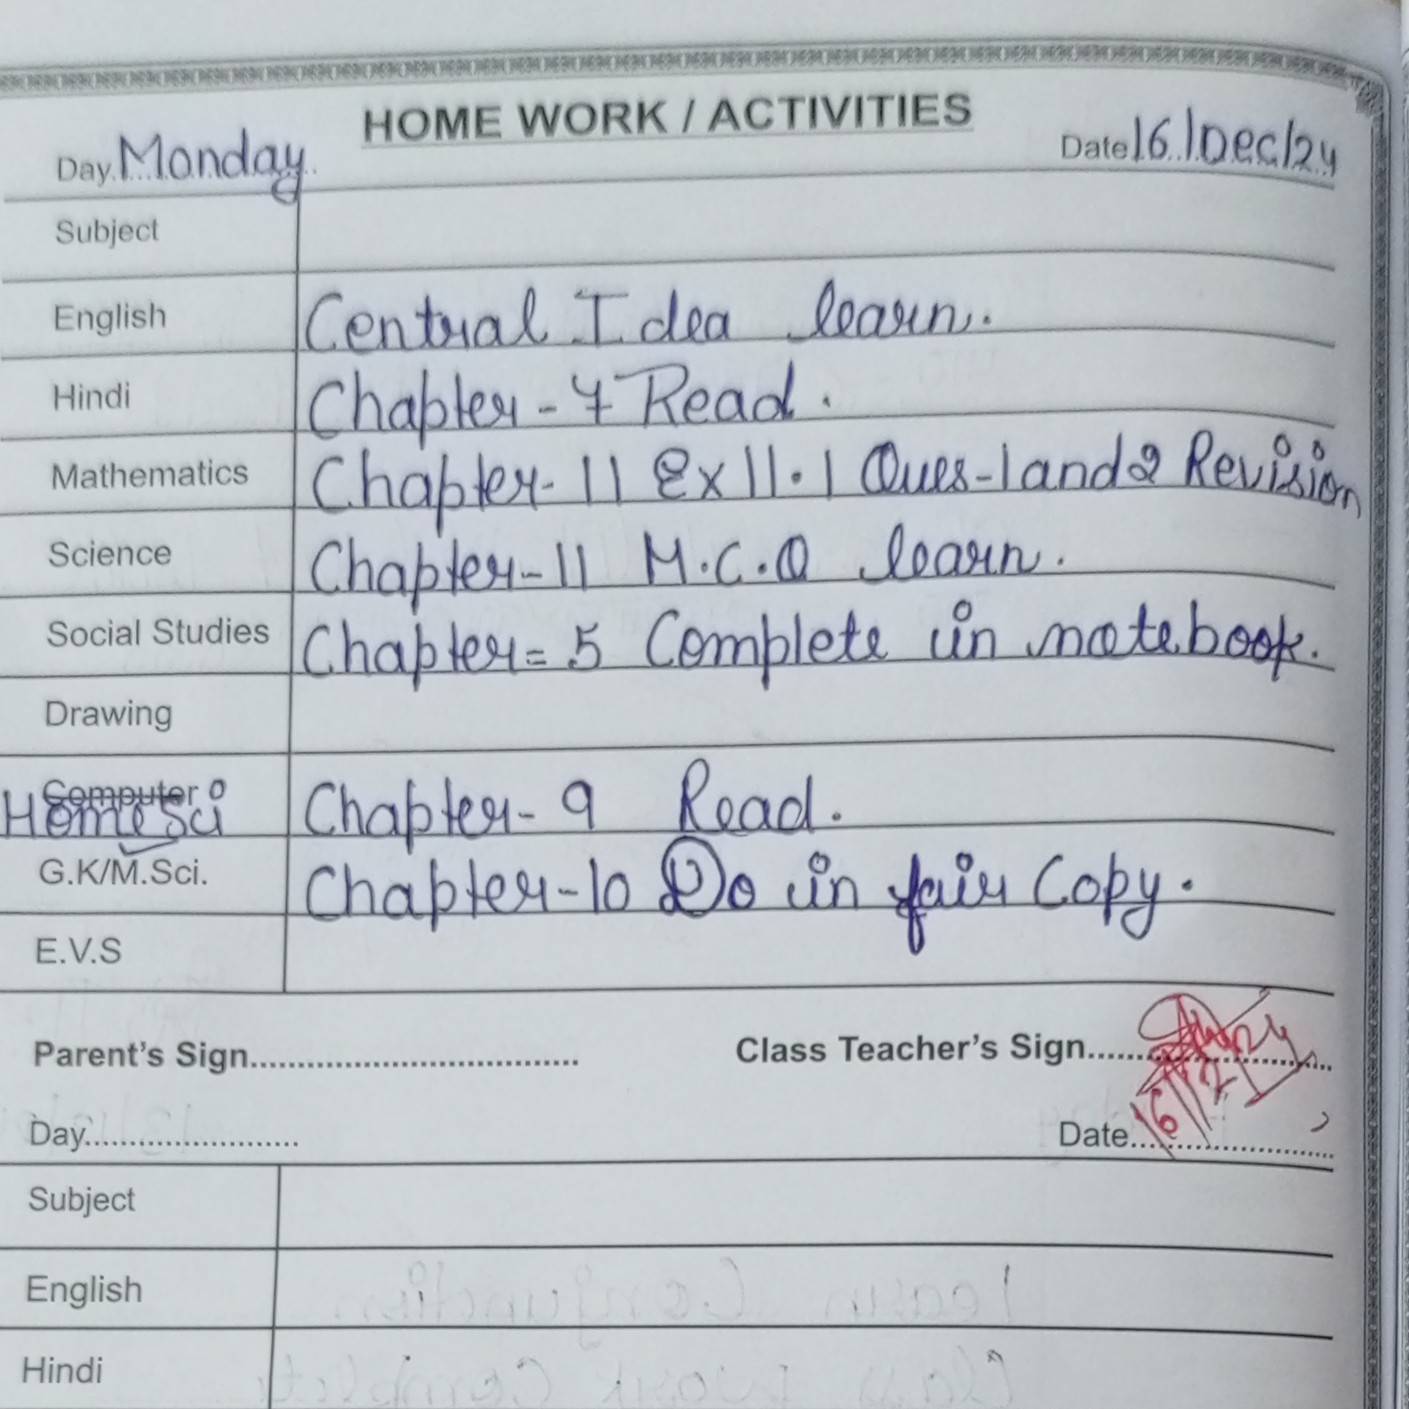 HOME WORK / ACTIVITIES
Day Monday Date 16/Dec/24
Subject
English Central Idea learn.
Hindi Chapter-7 Read.
Mathematics Chapter-11 Ex 11.1 Ques-1 and 2 Revision
Science Chapter-11 M.C.Q learn.
Social Studies Chapter=5 Complete in notebook.
Drawing
Computer Home Sci Chapter-9 Read.
G.K/M.Sci. Chapter-10 Do in fair Copy.
E.V.S
Parent's Sign............................ Class Teacher's Sign............................
16/12/24
Day...................... Date......................
Subject
English
Hindi